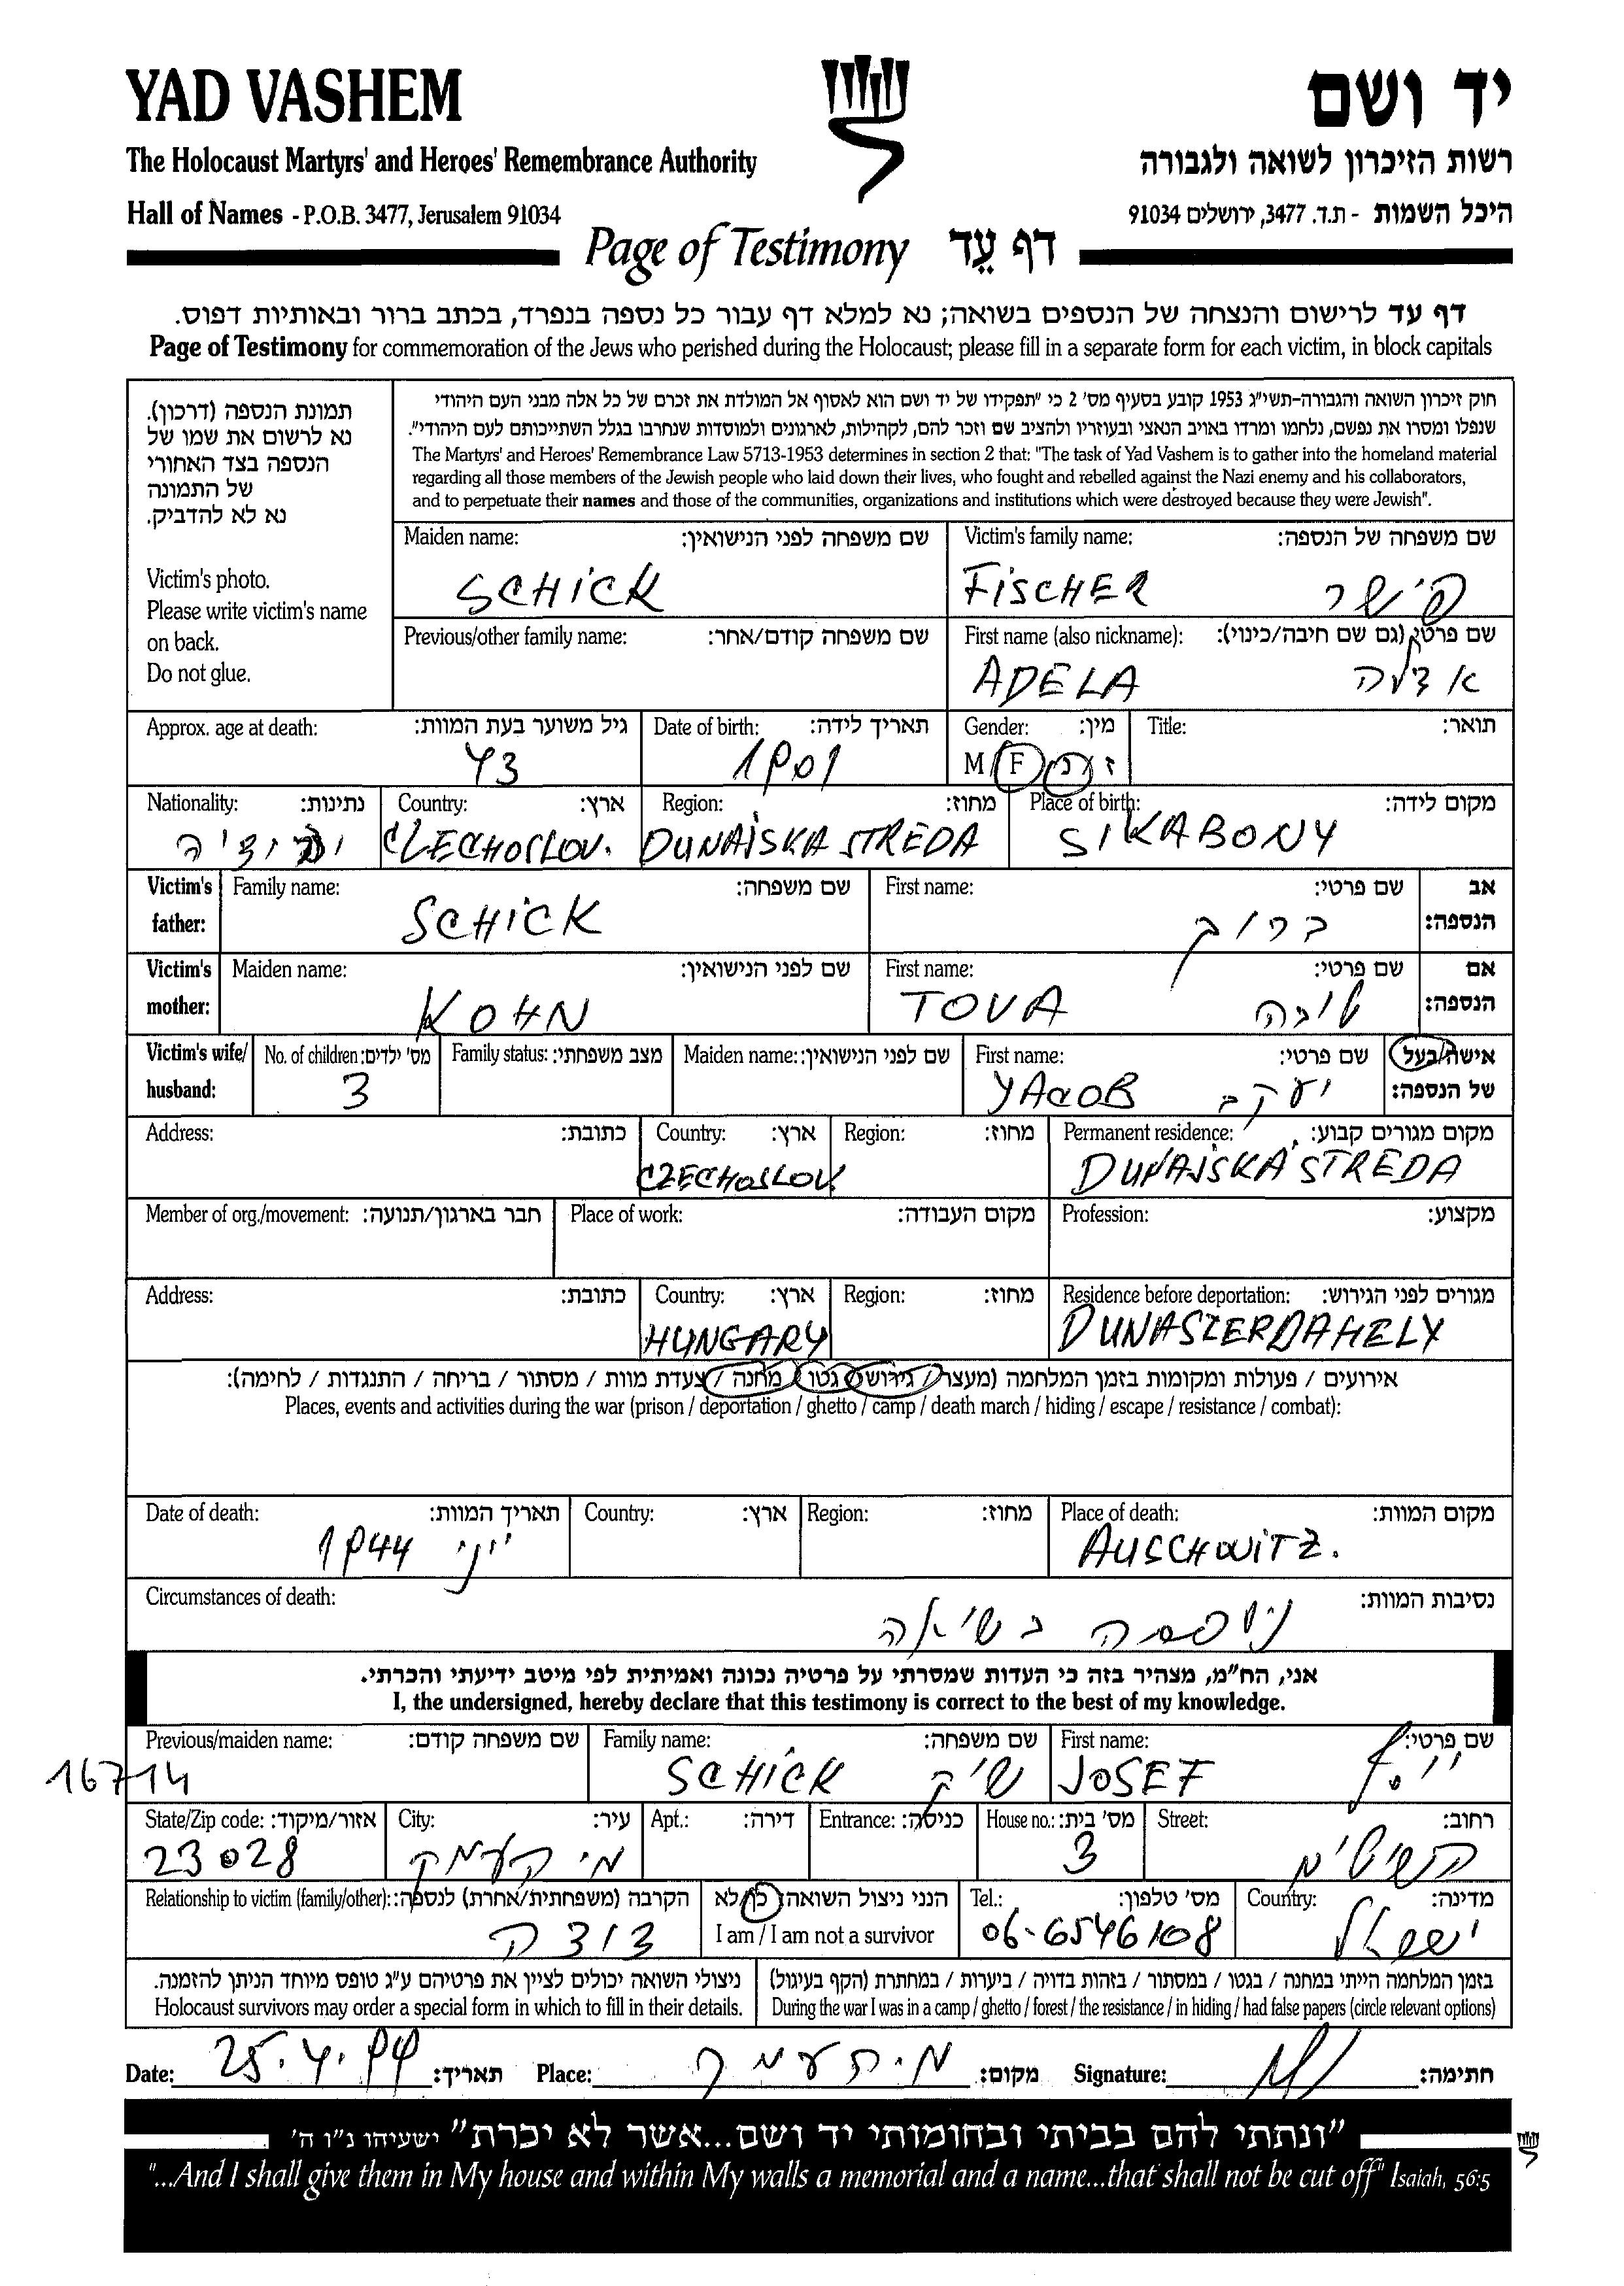 YAD VASHEM
יד ושם
The Holocaust Martyrs' and Heroes' Remembrance Authority
רשות הזיכרון לשואה ולגבורה
Hall of Names - P.O.B. 3477, Jerusalem 91034
היכל השמות - ת.ד. 3477, ירושלים 91034
Page of Testimony דף עֵד
דף עד לרישום והנצחה של הנספים בשואה; נא למלא דף עבור כל נספה בנפרד, בכתב ברור ובאותיות דפוס.
Page of Testimony for commemoration of the Jews who perished during the Holocaust; please fill in a separate form for each victim, in block capitals
תמונת הנספה (דרכון).
נא לרשום את שמו של
הנספה בצד האחורי
של התמונה
נא לא להדביק.
Victim's photo.
Please write victim's name
on back.
Do not glue.
חוק זיכרון השואה והגבורה-תשי"ג 1953 קובע בסעיף מס' 2 כי "תפקידו של יד ושם הוא לאסוף אל המולדת את זכרם של כל אלה מבני העם היהודי
שנפלו ומסרו את נפשם, נלחמו ומרדו באויב הנאצי ובעוזריו ולהציב שם וזכר להם, לקהילות, לארגונים ולמוסדות שנחרבו בגלל השתייכותם לעם היהודי".
The Martyrs' and Heroes' Remembrance Law 5713-1953 determines in section 2 that: "The task of Yad Vashem is to gather into the homeland material
regarding all those members of the Jewish people who laid down their lives, who fought and rebelled against the Nazi enemy and his collaborators,
and to perpetuate their names and those of the communities, organizations and institutions which were destroyed because they were Jewish".
Maiden name: שם משפחה לפני הנישואין:
SCHICK
Victim's family name: שם משפחה של הנספה:
FISCHER פישר
Previous/other family name: שם משפחה קודם/אחר:
First name (also nickname): שם פרטי (גם שם חיבה/כינוי):
ADELA אדלה
Approx. age at death: גיל משוער בעת המוות:
43
Date of birth: תאריך לידה:
1901
Gender: מין:
M/F ז/נ
Title: תואר:
Nationality: נתינות:
Country: ארץ:
CZECHOSLOV.
Region: מחוז:
DUNAJSKA STREDA
Place of birth: מקום לידה:
SIKABONY
Victim's father:
Family name: שם משפחה:
SCHICK
First name: שם פרטי:
ברוך
אב הנספה:
Victim's mother:
Maiden name: שם לפני הנישואין:
KOHN
First name: שם פרטי:
TOVA טובה
אם הנספה:
Victim's wife/ husband:
No. of children: מס' ילדים:
3
Family status: מצב משפחתי:
Maiden name: שם לפני הנישואין:
First name: שם פרטי:
YACOB יעקב
אישה/בעל של הנספה:
Address: כתובת:
Country: ארץ:
CZECHOSLOV.
Region: מחוז:
Permanent residence: מקום מגורים קבוע:
DUNAJSKA STREDA
Member of org./movement: חבר בארגון/תנועה:
Place of work: מקום העבודה:
Profession: מקצוע:
Address: כתובת:
Country: ארץ:
HUNGARY
Region: מחוז:
Residence before deportation: מגורים לפני הגירוש:
DUNASZERDAHELY
אירועים / פעולות ומקומות בזמן המלחמה (מעצר / גירוש / גטו / מחנה / צעדת מוות / מסתור / בריחה / התנגדות / לחימה):
Places, events and activities during the war (prison / deportation / ghetto / camp / death march / hiding / escape / resistance / combat):
Date of death: תאריך המוות:
יוני 1944
Country: ארץ:
Region: מחוז:
Place of death: מקום המוות:
AUSCHWITZ.
Circumstances of death: נסיבות המוות:
ניספה בשואה
אני, הח"מ, מצהיר בזה כי העדות שמסרתי על פרטיה נכונה ואמיתית לפי מיטב ידיעתי והכרתי.
I, the undersigned, hereby declare that this testimony is correct to the best of my knowledge.
Previous/maiden name: שם משפחה קודם:
16714
Family name: שם משפחה:
SCHICK שיק
First name: שם פרטי:
JOSEF יוסף
State/Zip code: אזור/מיקוד:
23028
City: עיר:
מ. העמק
Apt.: דירה:
Entrance: כניסה:
House no.: מס' בית:
3
Street: רחוב:
Relationship to victim (family/other): הקרבה (משפחתית/אחרת) לנספה:
דודה
הנני ניצול השואה: כן/לא
I am / I am not a survivor
Tel.: מס' טלפון:
06-6546108
Country: מדינה:
ישראל
ניצולי השואה יכולים לציין את פרטיהם ע"ג טופס מיוחד הניתן להזמנה.
Holocaust survivors may order a special form in which to fill in their details.
בזמן המלחמה הייתי במחנה / בגטו / במסתור / בזהות בדויה / ביערות / במחתרת (הקף בעיגול)
During the war I was in a camp / ghetto / forest / the resistance / in hiding / had false papers (circle relevant options)
Date: 25.4.99 תאריך: Place: מ. העמק מקום: Signature: חתימה:
"ונתתי להם בביתי ובחומותי יד ושם...אשר לא יכרת" ישעיהו נ"ו ה'
"...And I shall give them in My house and within My walls a memorial and a name...that shall not be cut off" Isaiah, 56:5